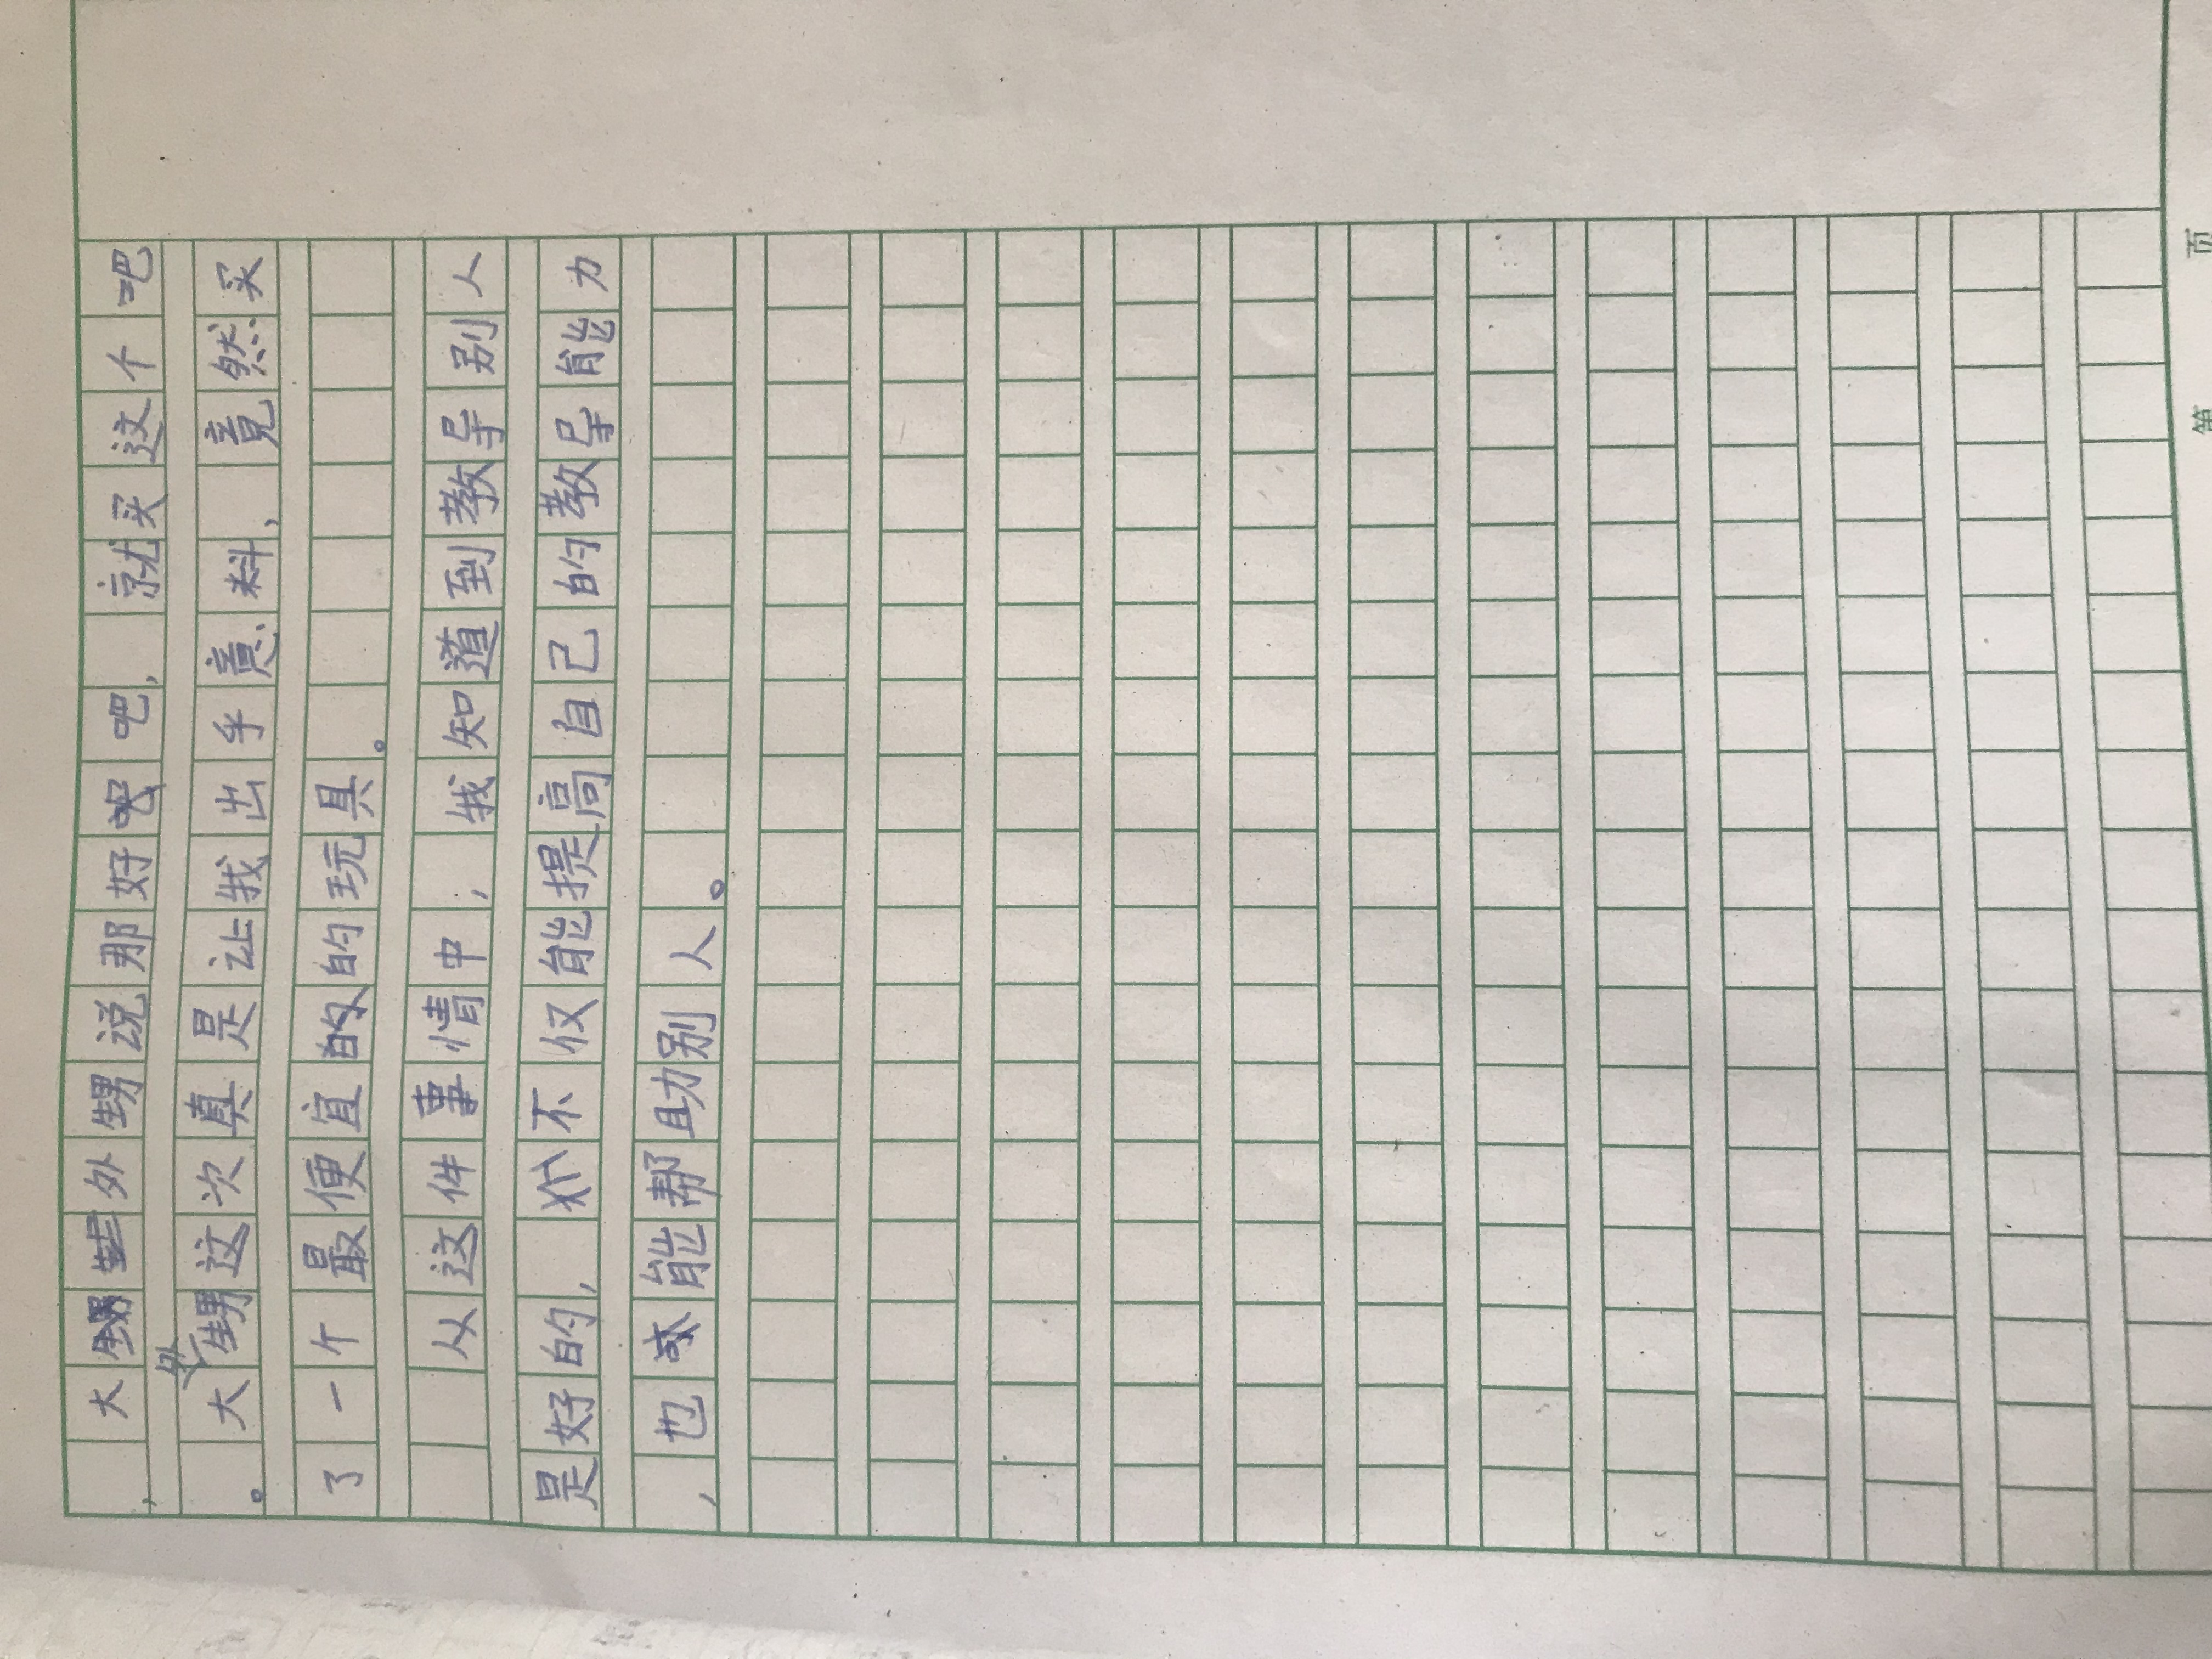 ，大外甥说那好吧，就买这个吧
。大外甥这次真是让我出乎意料，竟然买
了一个最便宜的玩具。
从这件事情中，我知道到教导别人
是好的，不仅能提高自己的教导能力
，也能帮助别人。
第 页